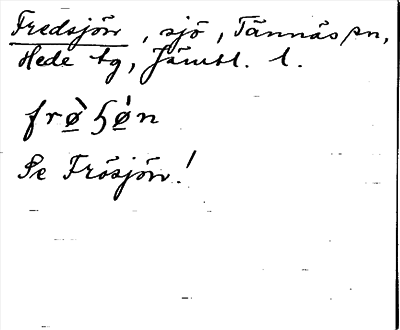 Fredsjön, sjö, Tännäs sn,
Hede tg, Jämtl. l.
frø̀ɧø̀n
Se Frösjön!